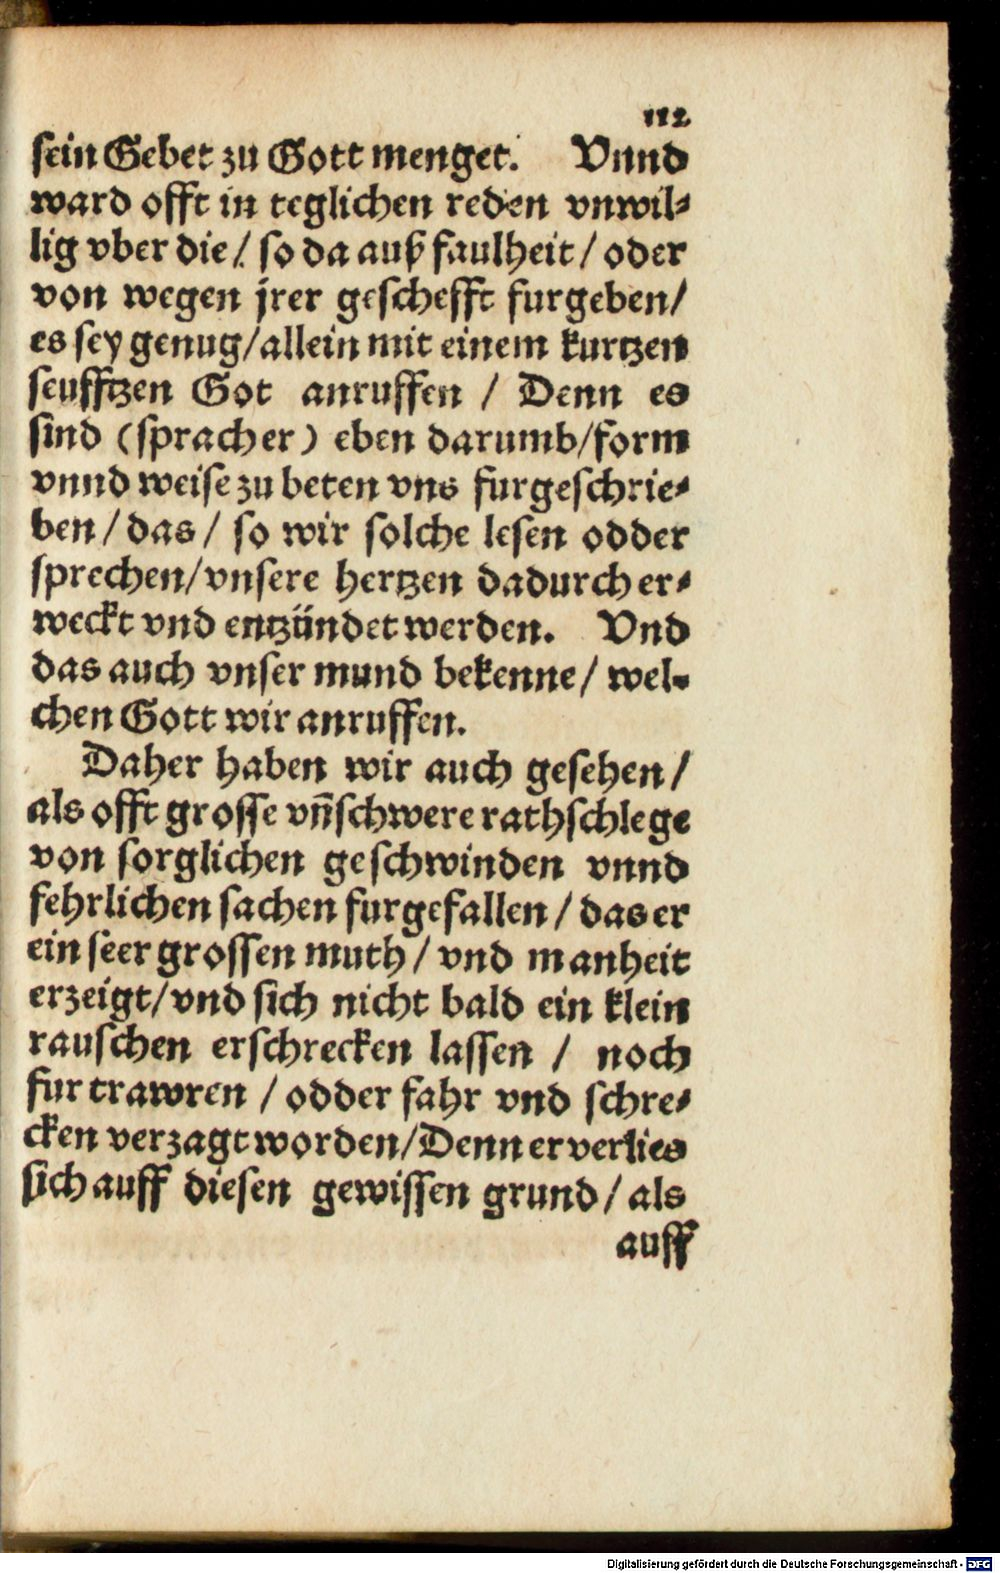 112
sein Gebet zu Gott menget. Vnnd
ward offt in teglichen reden vnwil⸗
lig vber die/ so da auß faulheit/ oder
von wegen jrer geschefft furgeben/
es sey genug/ allein mit einem kurtzen
seufftzen Got anruffen / Denn es
sind (sprach er) eben darumb/ form
vnnd weise zu beten vns furgeschrie⸗
ben/ das/ so wir solche lesen odder
sprechen/ vnsere hertzen dadurch er⸗
weckt vnd entzündet werden. Vnd
das auch vnser mund bekenne/ wel⸗
chen Gott wir anruffen.
Daher haben wir auch gesehen/
als offt grosse vñ schwere rathschlege
von sorglichen geschwinden vnnd
fehrlichen sachen furgefallen/ das er
ein seer grossen muth/ vnd manheit
erzeigt/ vnd sich nicht bald ein klein
rauschen erschrecken lassen / noch
fur trawren / odder fahr vnd schre⸗
cken verzagt worden/ Denn er verlies
sich auff diesen gewissen grund/ als
auff
Digitalisierung gefördert durch die Deutsche Forschungsgemeinschaft - DFG